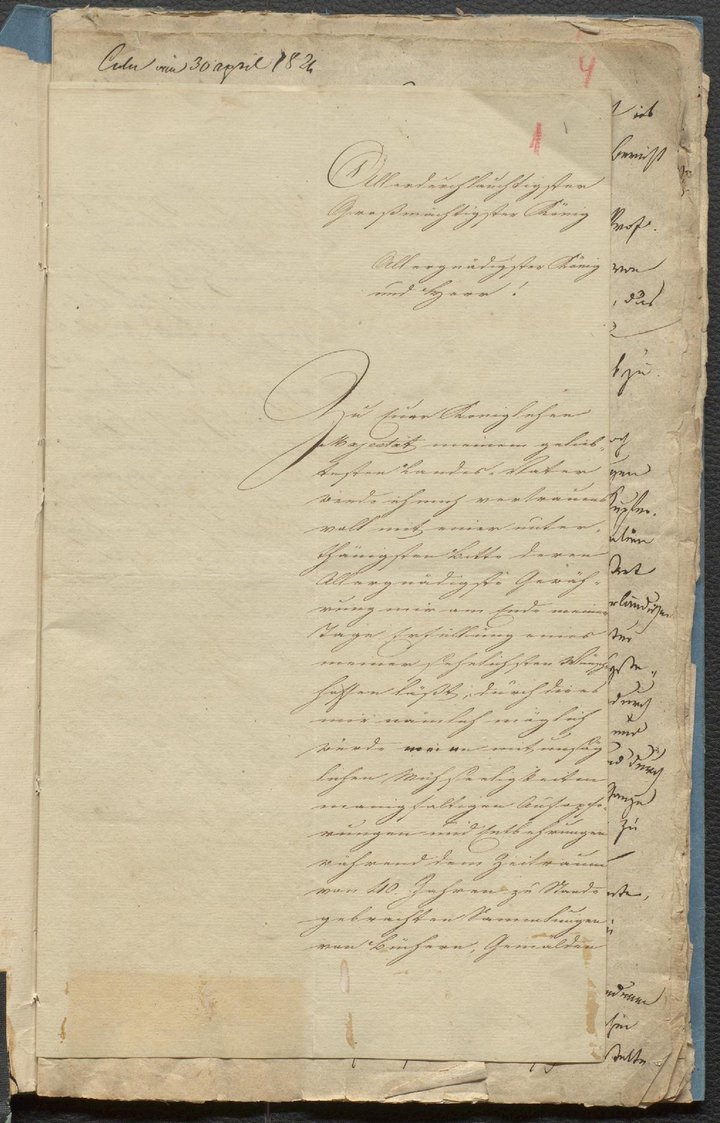 Cöln vom 30 april 182
4
1
Allerdurchlauchtigster
Großmächtigster König
Allergnädigster König
und Herr!
Zu Euer Königlichen
Majestät meinem gelieb-
testen Landes-Vater
wende ich mich vertrauens
voll mit einer unter-
thänigsten Bitte deren
Allergnädigste Gewäh-
rung mir am Ende meiner
Tage Erfüllung eines
meiner sehnlichsten Wünsche
hoffen läßt, durch die es
mir nämlich möglich
würde meine mit unsäg
lichen Mühseeligkeiten
manigfaltigen Aufopfe-
rungen und Entbehrungen
während dem Zeitraume
von 40 Jahren zu Stande
gebrachten Sammlungen
von Büchern, Gemälden
ich
bericht
Prof.
von
, das
zu
durch
Ganze
zu